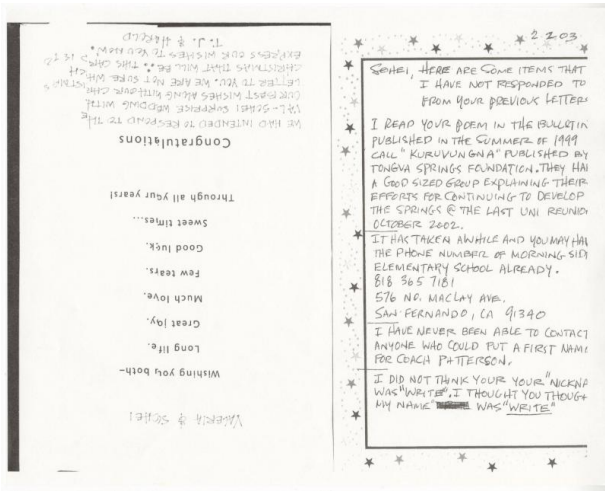 VALERIA & SOHEI
Wishing you both-
Long life.
Great joy.
Much love.
Few tears.
Good luck.
Sweet times...
Through all your years!
Congratulations
WE HAD INTENDED TO RESPOND TO THE
VAL-SOHEI SURPRISE WEDDING WITH
OUR BEST WISHES ALONG WITH OUR CHRISTMAS
LETTER TO YOU. WE ARE NOT SURE WHICH
CHRISTMAS THAT WILL BE ∴ THIS CARD IS TO
EXPRESS OUR WISHES TO YOU NOW.
T.J. & HAROLD
2 2 03
SOHEI, HERE ARE SOME ITEMS THAT
I HAVE NOT RESPONDED TO
FROM YOUR PREVIOUS LETTERS
I READ YOUR POEM IN THE BULLETIN
PUBLISHED IN THE SUMMER OF 1999
CALL "KURUVUNGNA" PUBLISHED BY
TONGVA SPRINGS FOUNDATION. THEY HAD
A GOOD SIZED GROUP EXPLAINING THEIR
EFFORTS FOR CONTINUING TO DEVELOP
THE SPRINGS @ THE LAST UNI REUNION
OCTOBER 2002.
IT HAS TAKEN AWHILE AND YOU MAY HAV
THE PHONE NUMBER OF MORNING SIDE
ELEMENTARY SCHOOL ALREADY.
818 365 7181
576 NO. MACLAY AVE.
SAN FERNANDO, CA 91340
I HAVE NEVER BEEN ABLE TO CONTACT
ANYONE WHO COULD PUT A FIRST NAME
FOR COACH PATTERSON.
I DID NOT THINK YOUR YOUR "NICKNA
WAS "WRITE". I THOUGHT YOU THOUGH
MY NAME WAS "WRITE"